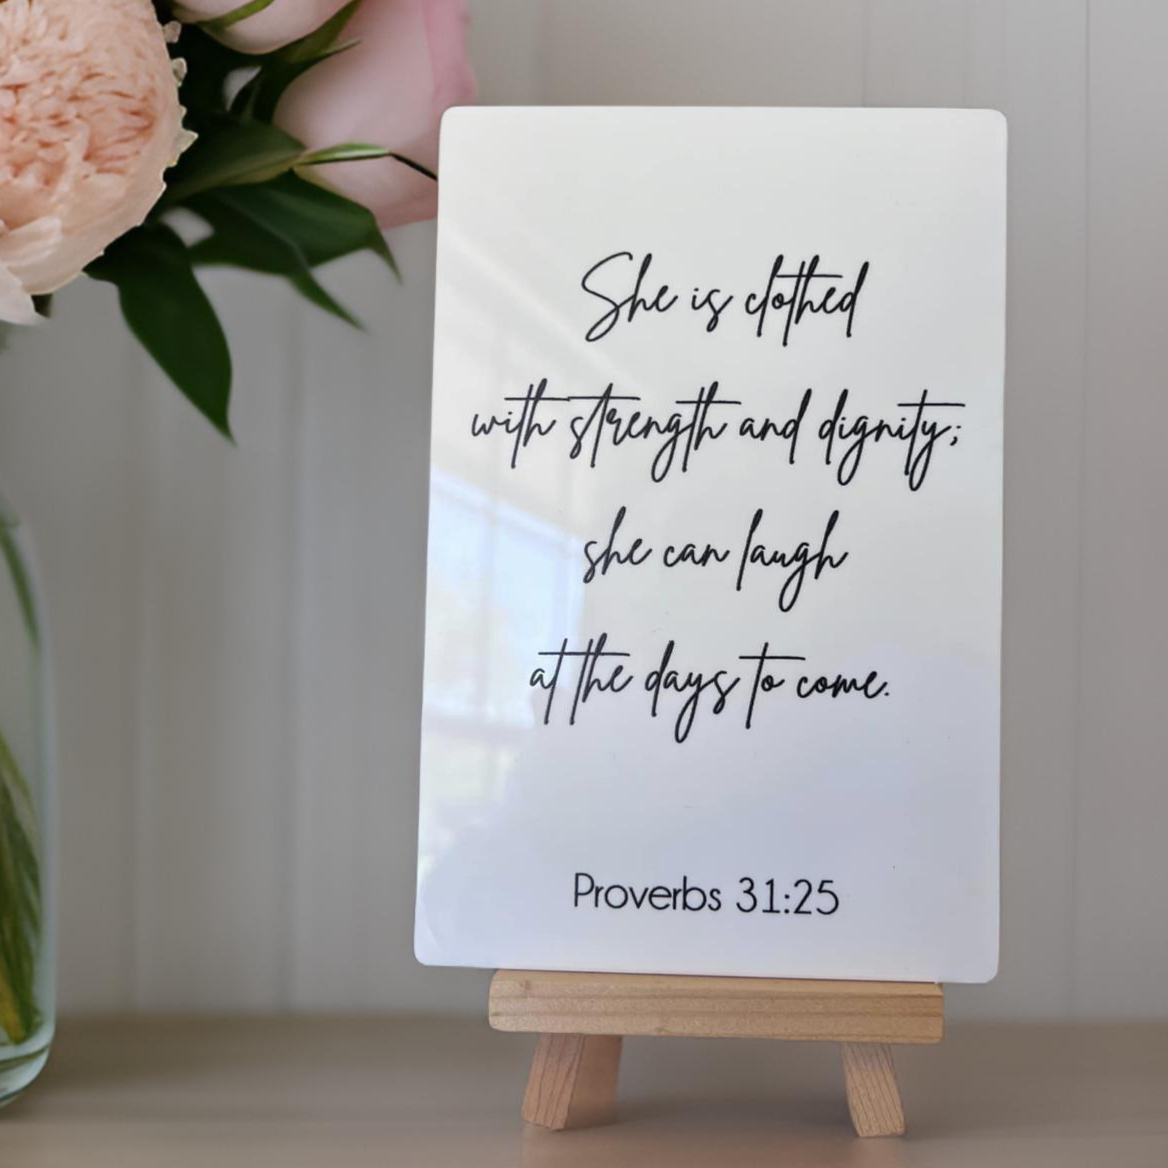 She is clothed
with strength and dignity;
she can laugh
at the days to come.
Proverbs 31:25